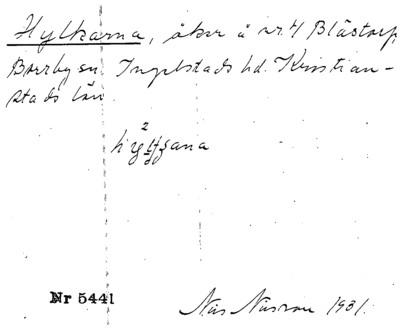 Hylkarna, åker å nr 4 Blästorp,
Borrby sn. Ingelstads hd. Kristian-
stads län.
Nr 5441
Nils Nilsson 1931.